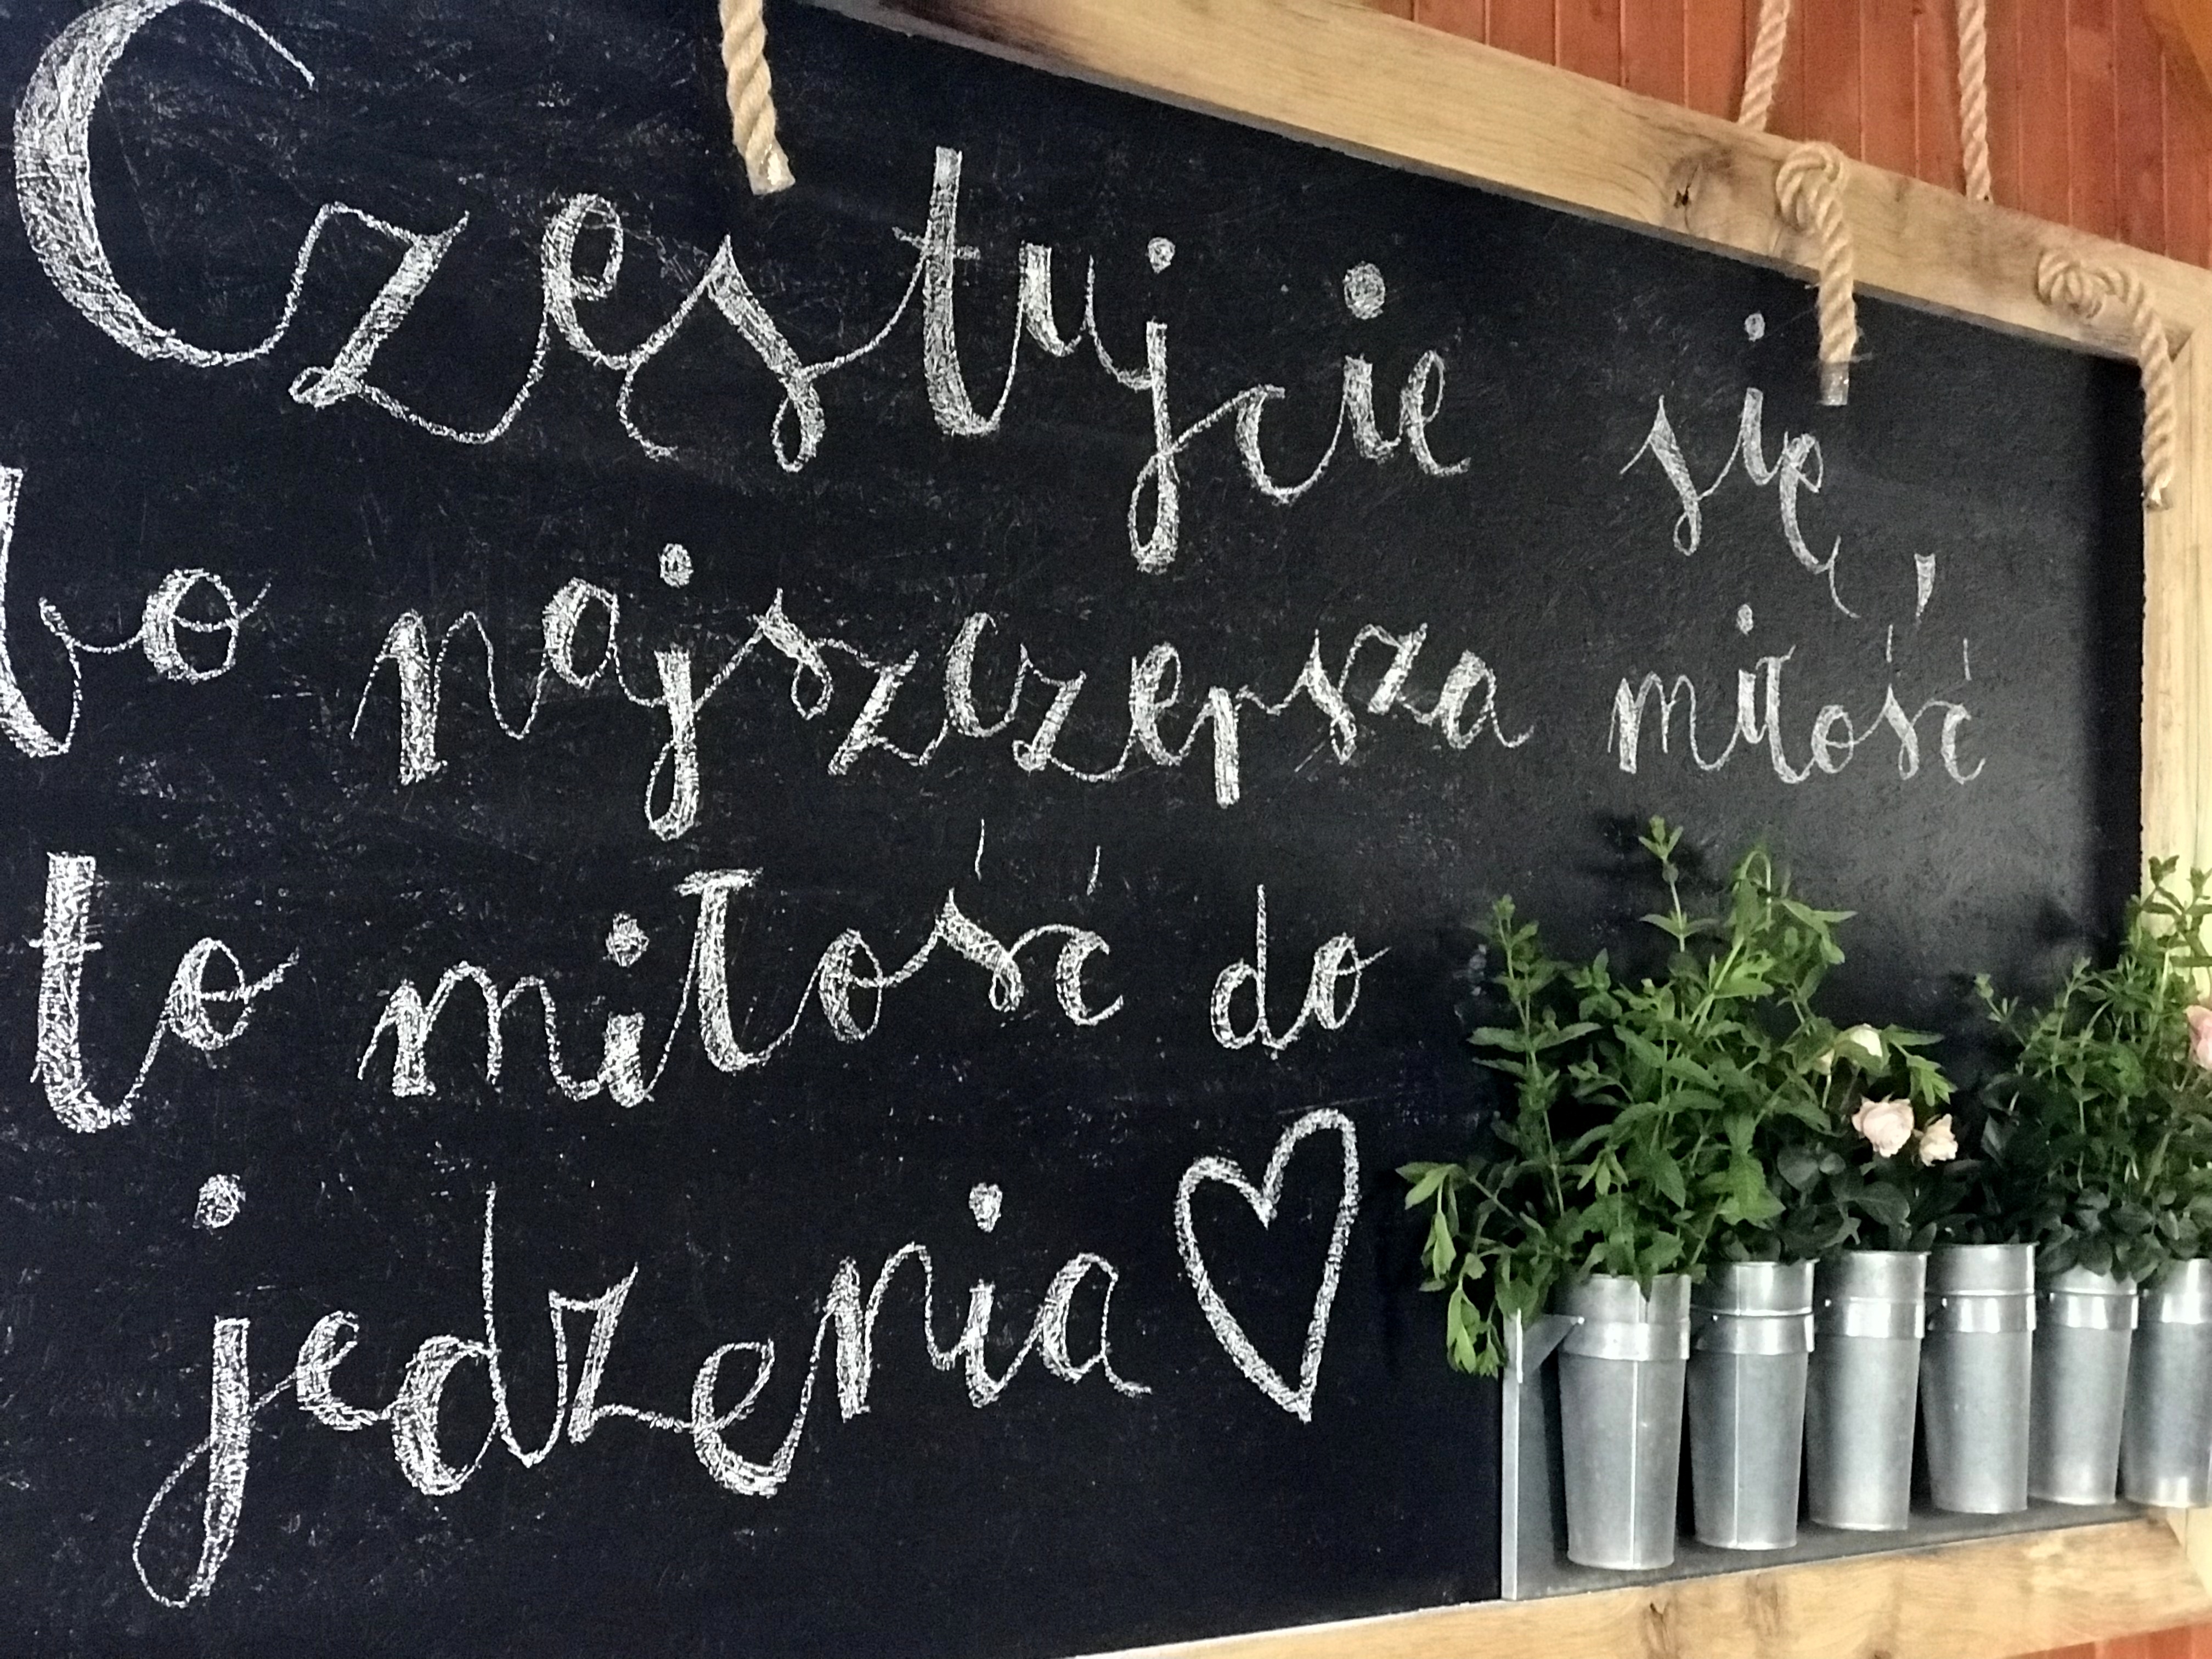 Częstujcie się,
bo najszczersza miłość
to miłość do
jedzenia ♡